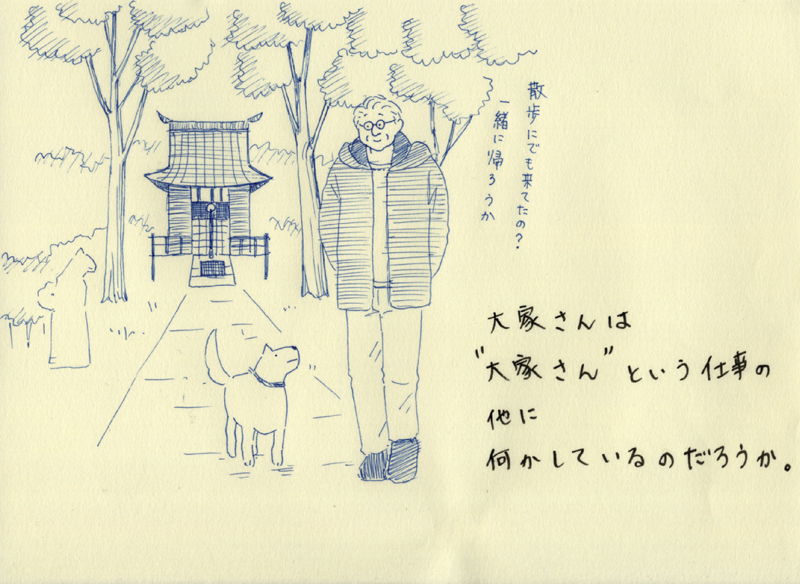 散歩にでも来てたの？
一緒に帰ろうか
大家さんは
"大家さん"という仕事の
他に
何かしているのだろうか。